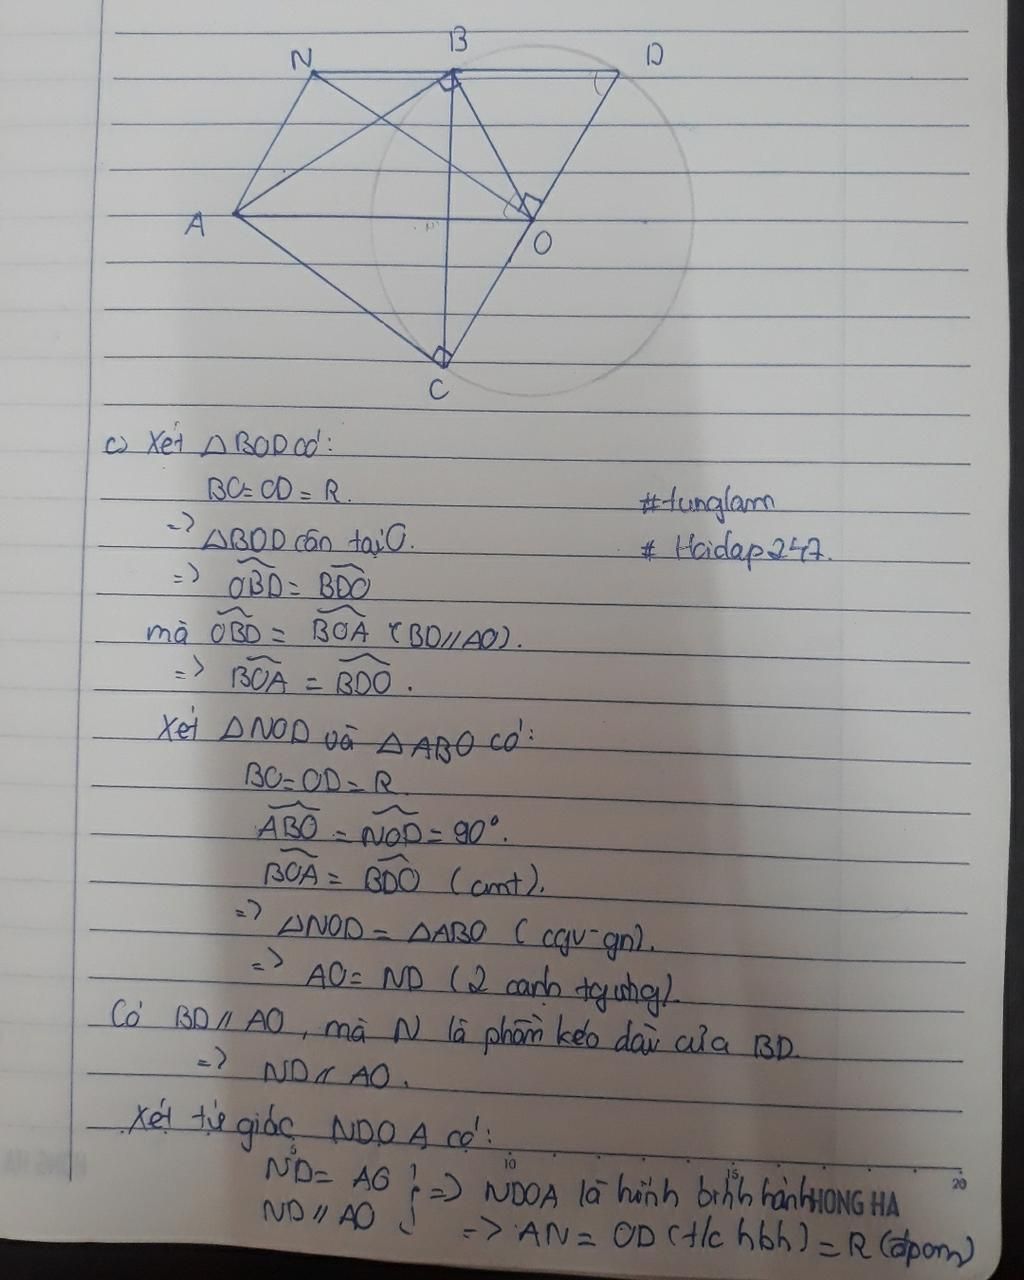 N B D
A O
C
c) Xét △BOD có:
BO = OD = R.
=> △BOD cân tại O.
=> OBD = BDO
mà OBD = BOA (BD // AO).
=> BOA = BDO.
Xét △NOD và △ABO có:
BO = OD = R
ABO = NOD = 90°.
BOA = BDO (cmt).
=> △NOD = △ABO (cgv-gn).
=> AO = ND (2 cạnh tg ứng)
Có BD // AO, mà N là phần kéo dài của BD
=> ND // AO.
Xét tứ giác NDOA có:
ND = AO } => NDOA là hình bình hành
ND // AO
=> AN = OD (t/c hbh) = R (đpcm)
#tunglam
# Hoidap247.
5 10 15 20
HONG HA